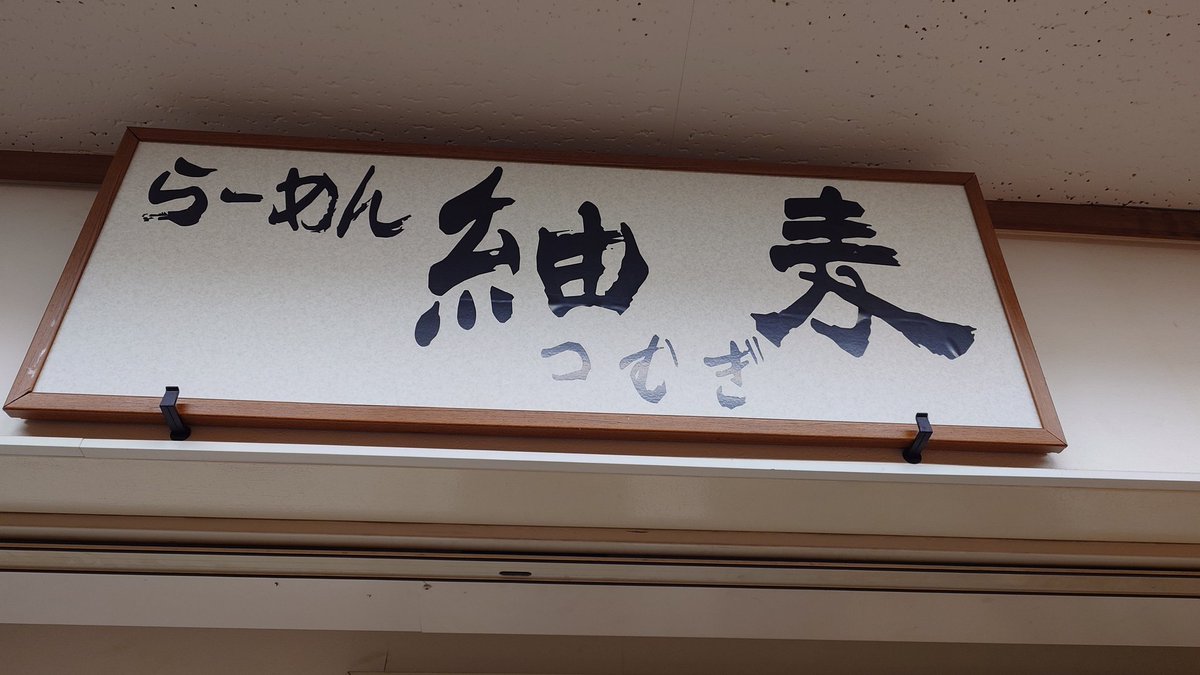 らーめん 紬 麦
つむぎ